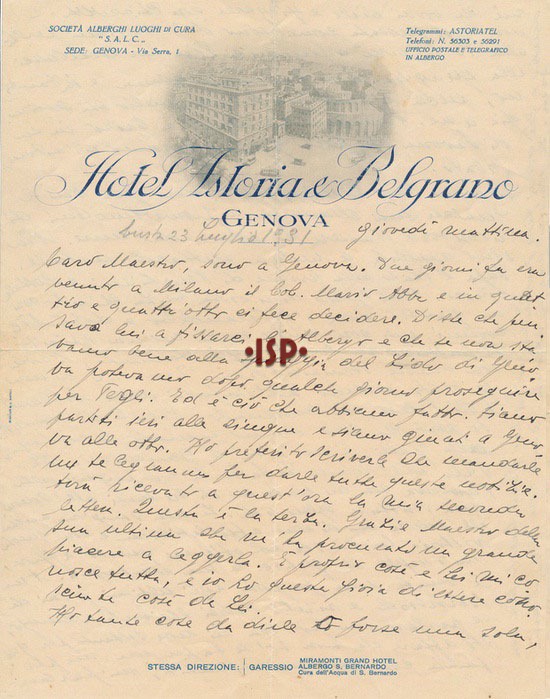 SOCIETÀ ALBERGHI LUOGHI DI CURA
"S.A.L.C."
SEDE: GENOVA - Via Serra, 1
Telegrammi: ASTORIATEL
Telefoni: N. 56303 e 56291
UFFICIO POSTALE E TELEGRAFICO
IN ALBERGO
Hotel Astoria & Belgrano
GENOVA
busta 23 Luglio 1931
giovedì mattina.
Caro Maestro, sono a Genova. Due giorni fa era
venuto a Milano il Col. Mario Abba e in quat
tro e quattro otto ci fece decidere. Disse che pen
sava lui a fissarci l'Albergo e che se non sta
vamo bene alla del Lido di Geno
va potevamo dopo qualche giorno proseguire
per Pegli. Ed è ciò che abbiamo fatto. Siamo
partiti ieri alle cinque e siamo giunti a Geno
va alle otto. Ho preferito scriverle che mandarle
un telegramma per darle tutte queste notizie.
ricevuto a quest'ora la mia seconda
lettera. Questa è la terza. Grazie Maestro della
sua ultima che mi ha procurato un grande
piacere a leggerla. È proprio così e Lei mi co
nosce tutta, e io ho questa gioia di essere cono
sciuta così da Lei.
Ho tante cose da dirle o forse una sola,
·ISP·
STESSA DIREZIONE: GARESSIO
MIRAMONTI GRAND HOTEL
ALBERGO S. BERNARDO
Cura dell'Acqua di S. Bernardo